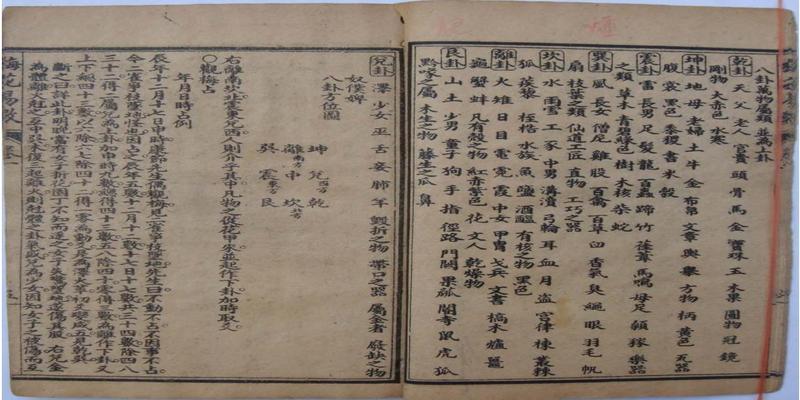 八卦萬物屬類 並為上卦
乾卦 天 父 老人 官貴 頭 骨 馬 金 寶珠 玉 木果 圓物 冠 鏡
剛物 大赤色 水寒
坤卦 地 母 老婦 土 牛 金 布帛 文章 輿 輦 方物 柄 黃色 瓦器
腹 裳 黑色 黍稷 書 米 穀
震卦 雷 長男 足 髮 龍 百蟲 蹄 竹 萑葦 馬鳴 母足 顙 稼 樂器
之類 草木 青碧綠色 樹 木核 柴 蛇
巽卦 風 長女 僧尼 雞 股 百禽 百草 臼 香氣 臭 繩 眼 羽毛 帆
扇 枝葉之類 仙道工匠 直物 工巧之器
坎卦 水 雨雪 工 豕 中男 溝瀆 弓輪 耳 血 月 盜 宮律 棟 叢棘
狐 蒺藜 桎梏 水族 魚 鹽 酒醢 有核之物 黑色
離卦 火 雉 日 目 電 霓 霞 中女 甲冑 戈兵 文書 槁木 爐
龜 蟹 蚌 凡有殼之物 紅赤紫色 花 文人 乾燥物
艮卦 山 土 少男 童子 狗 手 指 徑路 門闕 果蓏 閽寺 鼠 虎 狐
黔喙之屬 木生之物 藤生之瓜 鼻
兌卦 澤 少女 巫 舌 妾 肺 羊 毀折之物 帶口之器 屬金者 廢缺之物
奴僕婢
八卦方位圖
坤 兌西方 乾
離南方 中 坎北方
巽 震東方 艮
右離南坎北震東兌西人則介乎其中凡物之從花甲來並起作下卦加時取爻
○觀梅占
年月日時占例
辰年十二月十七日申時康節先生偶觀梅見二雀爭枝墜地先生曰不動不占不因事不占
今二雀爭枝墜地怪也因占之辰年五數十二月十二數十七日十七數共三十四數除四八
三十二得二屬兌為上卦加申時九數總得四十三數五八除四十零得三數為離作下卦又
上下總四十三數以六除六七除四十二得一零為動爻是為澤火革初爻變咸互見乾巽
斷之曰詳此卦明晚當有女子折花園丁不知而逐之女子失驚墜地遂傷其股 右兌金
為體離火剋之互中巽木復三起離火則剋體之卦氣盛兌為少女因知女子之被傷而互
梅花易數